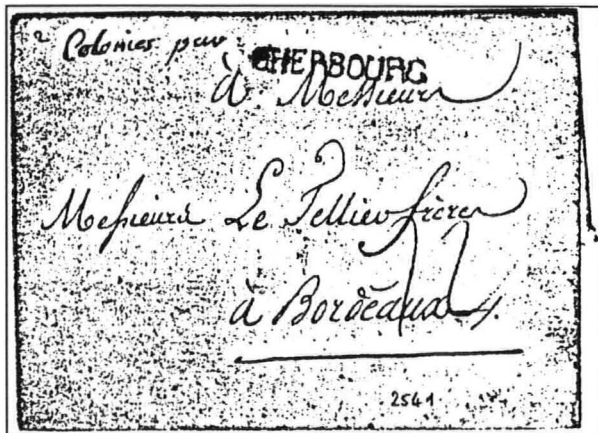 Colonies par CHERBOURG
à Messieurs
Messieurs Le Tellier frères
à Bordeaux
2541